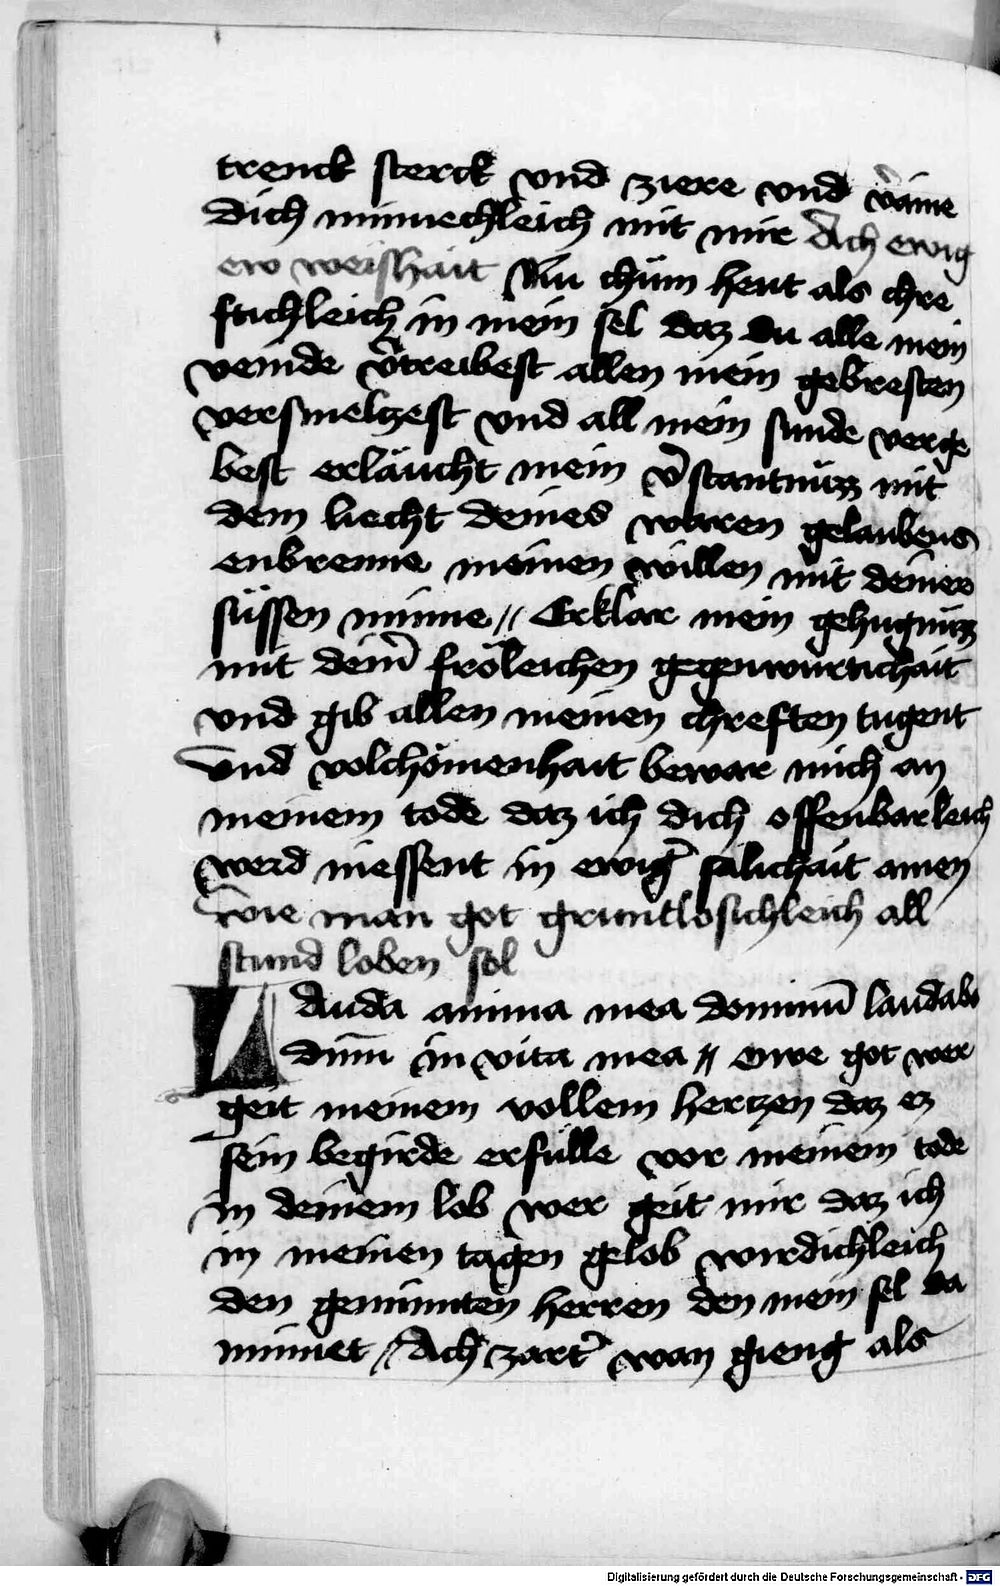 trenck sterck vnd ziere vnd v̉aine
dich minnechleich mit mir Ach ewig
ew weishait Nu chüm heut als chre
ftichleich in mein sel daz du alle mein
veinde v̉treibest allen mein gebresten
versmeltzest vnd all mein sunde verge
best erläucht mein v̉stantnüzz mit
dem liecht deines waren gelaubens
enbrenne meinen willen mit deiner
süssen minne // Erklar mein gehugnüzz
mit deinr̄ fröleichen gegenwurtichait
vnd gib allen meinen chreften tugent
vnd volchömenhait bewar mich an
meinem tode daz ich dich offenbarleich
werd niessent in ewigr̄ sälichäit amen
wie man got gruntlosichleich all
stund loben sol
Lauda anima mea dominū laudabo
dnm̄ in vita mea // owe got wer
geit meinem vollem hertzen daz ez
sein begirde erfulle vor meinem tode
in deinem lob wer geit mir daz ich
in meinen tagen gelob wirdichleich
den geminnten herren den mein sel da
minnet / Ach zartr̄ wan gieng als
Digitalisierung gefördert durch die Deutsche Forschungsgemeinschaft - DFG